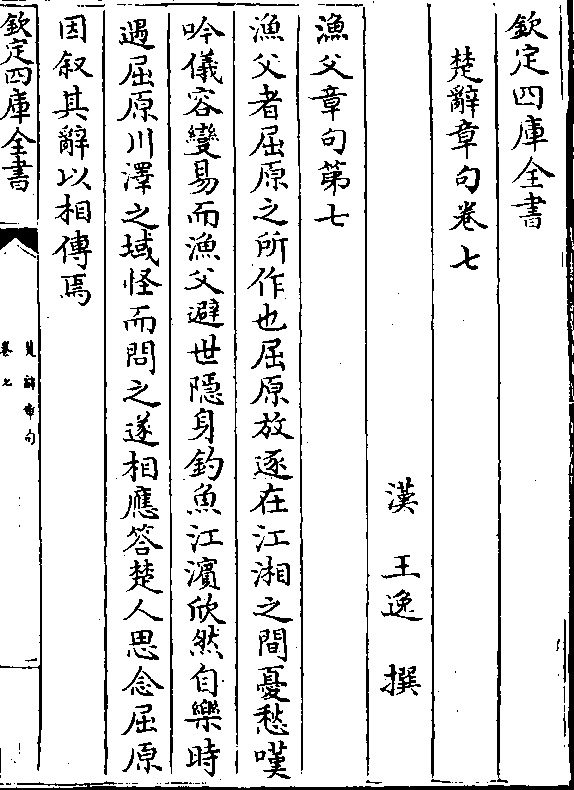 欽定四庫全書
楚辭章句卷七
漢　王逸　撰
漁父章句第七
漁父者屈原之所作也屈原放逐在江湘之間憂愁嘆
吟儀容變易而漁父避世隱身釣魚江濱欣然自樂時
遇屈原川澤之域怪而問之遂相應答楚人思念屈原
因叙其辭以相傳焉
欽定四庫全書
楚辭章句
卷七